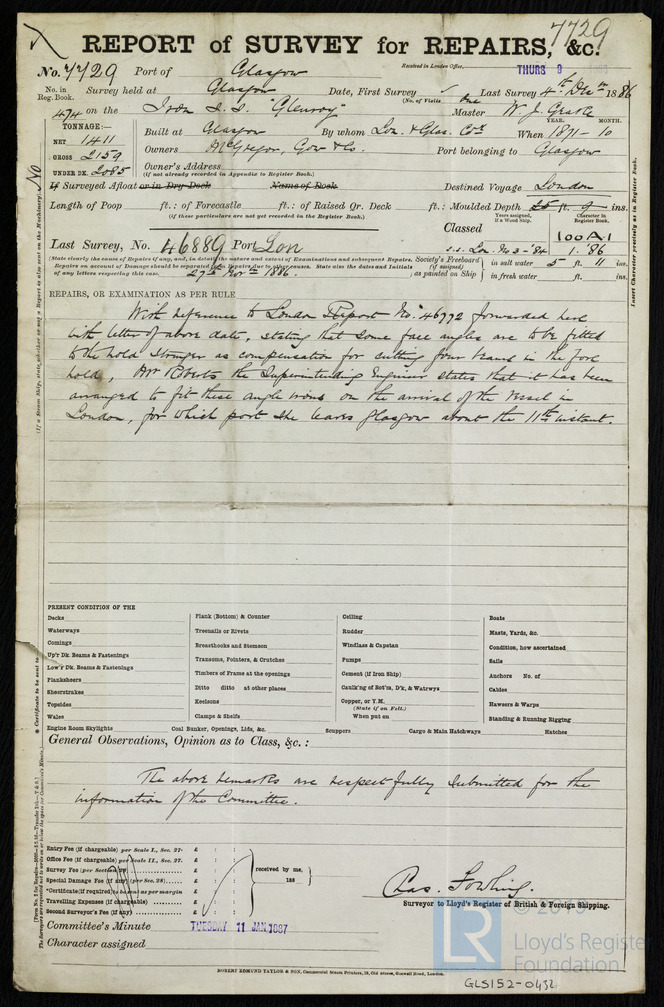 7729
REPORT of SURVEY for REPAIRS, &c.
No. 7729 Port of Glasgow
Received in London Office, THURS 9
No. in Reg. Book. Survey held at Glasgow Date, First Survey ✓ Last Survey 4th Decr 1886
(No. of Visits One
474 on the Iron S.S. "Glenroy" Master W. J.
TONNAGE:—
NET 1411
GROSS 2159
UNDER DK. 2085
Built at Glasgow By whom Lon. & Glas. Coy. When 1871-10
YEAR. MONTH.
Owners McGregor, Gow & Co. Port belonging to Glasgow
Owner's Address
(if not already recorded in Appendix to Register Book.)
If Surveyed Afloat or in Dry Dock Name of Dock Destined Voyage London
Length of Poop ft.: of Forecastle ft.: of Raised Qr. Deck ft.: Moulded Depth ft. 9 ins.
(if these particulars are not yet recorded in the Register Book.)
Years assigned, if a Wood Ship.
Character in Register Book.
Classed 100A.1
Last Survey, No. 46889 Port Lon
s.s. Lon. No 3-'84 1.'86
(State clearly the cause of Repairs if any, and, in detail, the nature and extent of Examinations and subsequent Repairs.
Repairs on account of Damage should be separated from Repairs due to other causes. State also the dates and initials
of any letters respecting this case. 27th Novr 1886.
Society's Freeboard (if assigned) as painted on Ship
in salt water 5 ft. 11 ins.
in fresh water ft. ins.
REPAIRS, OR EXAMINATION AS PER RULE
With reference to London Report No. 46772 forwarded here
with letter of above date, stating that some face angles are to be fitted
to the hold stringer as compensation for cutting four beams in the fore
hold, Mr Roberts the Superintending Engineer states that it has been
arranged to fit these angle irons on the arrival of the vessel in
London, for which port she leaves Glasgow about the 11th instant.
PRESENT CONDITION OF THE
Decks
Waterways
Comings
Up'r Dk. Beams & Fastenings
Low'r Dk. Beams & Fastenings
Planksheers
Sheerstrakes
Topsides
Wales
Engine Room Skylights
Plank (Bottom) & Counter
Treenails or Rivets
Breasthooks and Stemson
Transoms, Pointers, & Crutches
Timbers of Frame at the openings
Ditto ditto at other places
Keelsons
Clamps & Shelfs
Coal Bunker, Openings, Lids, &c.
Ceiling
Rudder
Windlass & Capstan
Pumps
Cement (if Iron Ship)
Caulk'ng of Bot'm, D'k, & Watrwys
Copper, or Y.M.
(State if on Felt.)
When put on
Scuppers
Cargo & Main Hatchways
Boats
Masts, Yards, &c.
Condition, how ascertained
Sails
Anchors No. of
Cables
Hawsers & Warps
Standing & Running Rigging
Hatches
General Observations, Opinion as to Class, &c.:
The above remarks are respectfully submitted for the
information of the Committee.
Entry Fee (if chargeable) per Scale I., Sec. 27. £ : :
Office Fee (if chargeable) per Scale II., Sec. 27. £ : :
Survey Fee (per Section 28) £ : :
Special Damage Fee (if any) (per Sec. 28) £ : :
*Certificate (if required) to be sent as per margin £ : :
Travelling Expenses (if chargeable) £ : :
Second Surveyor's Fee (if any) £ : :
received by me,
188
Chas. Fowling.
Surveyor to Lloyd's Register of British & Foreign Shipping.
Committee's Minute TUESDAY 11 JAN 1887
Character assigned
ROBERT EDMUND TAYLOR & SON, Commercial Steam Printers, 19, Old Street, Goswell Road, London.
LR
Lloyd's Register
Foundation
GLS152-0432